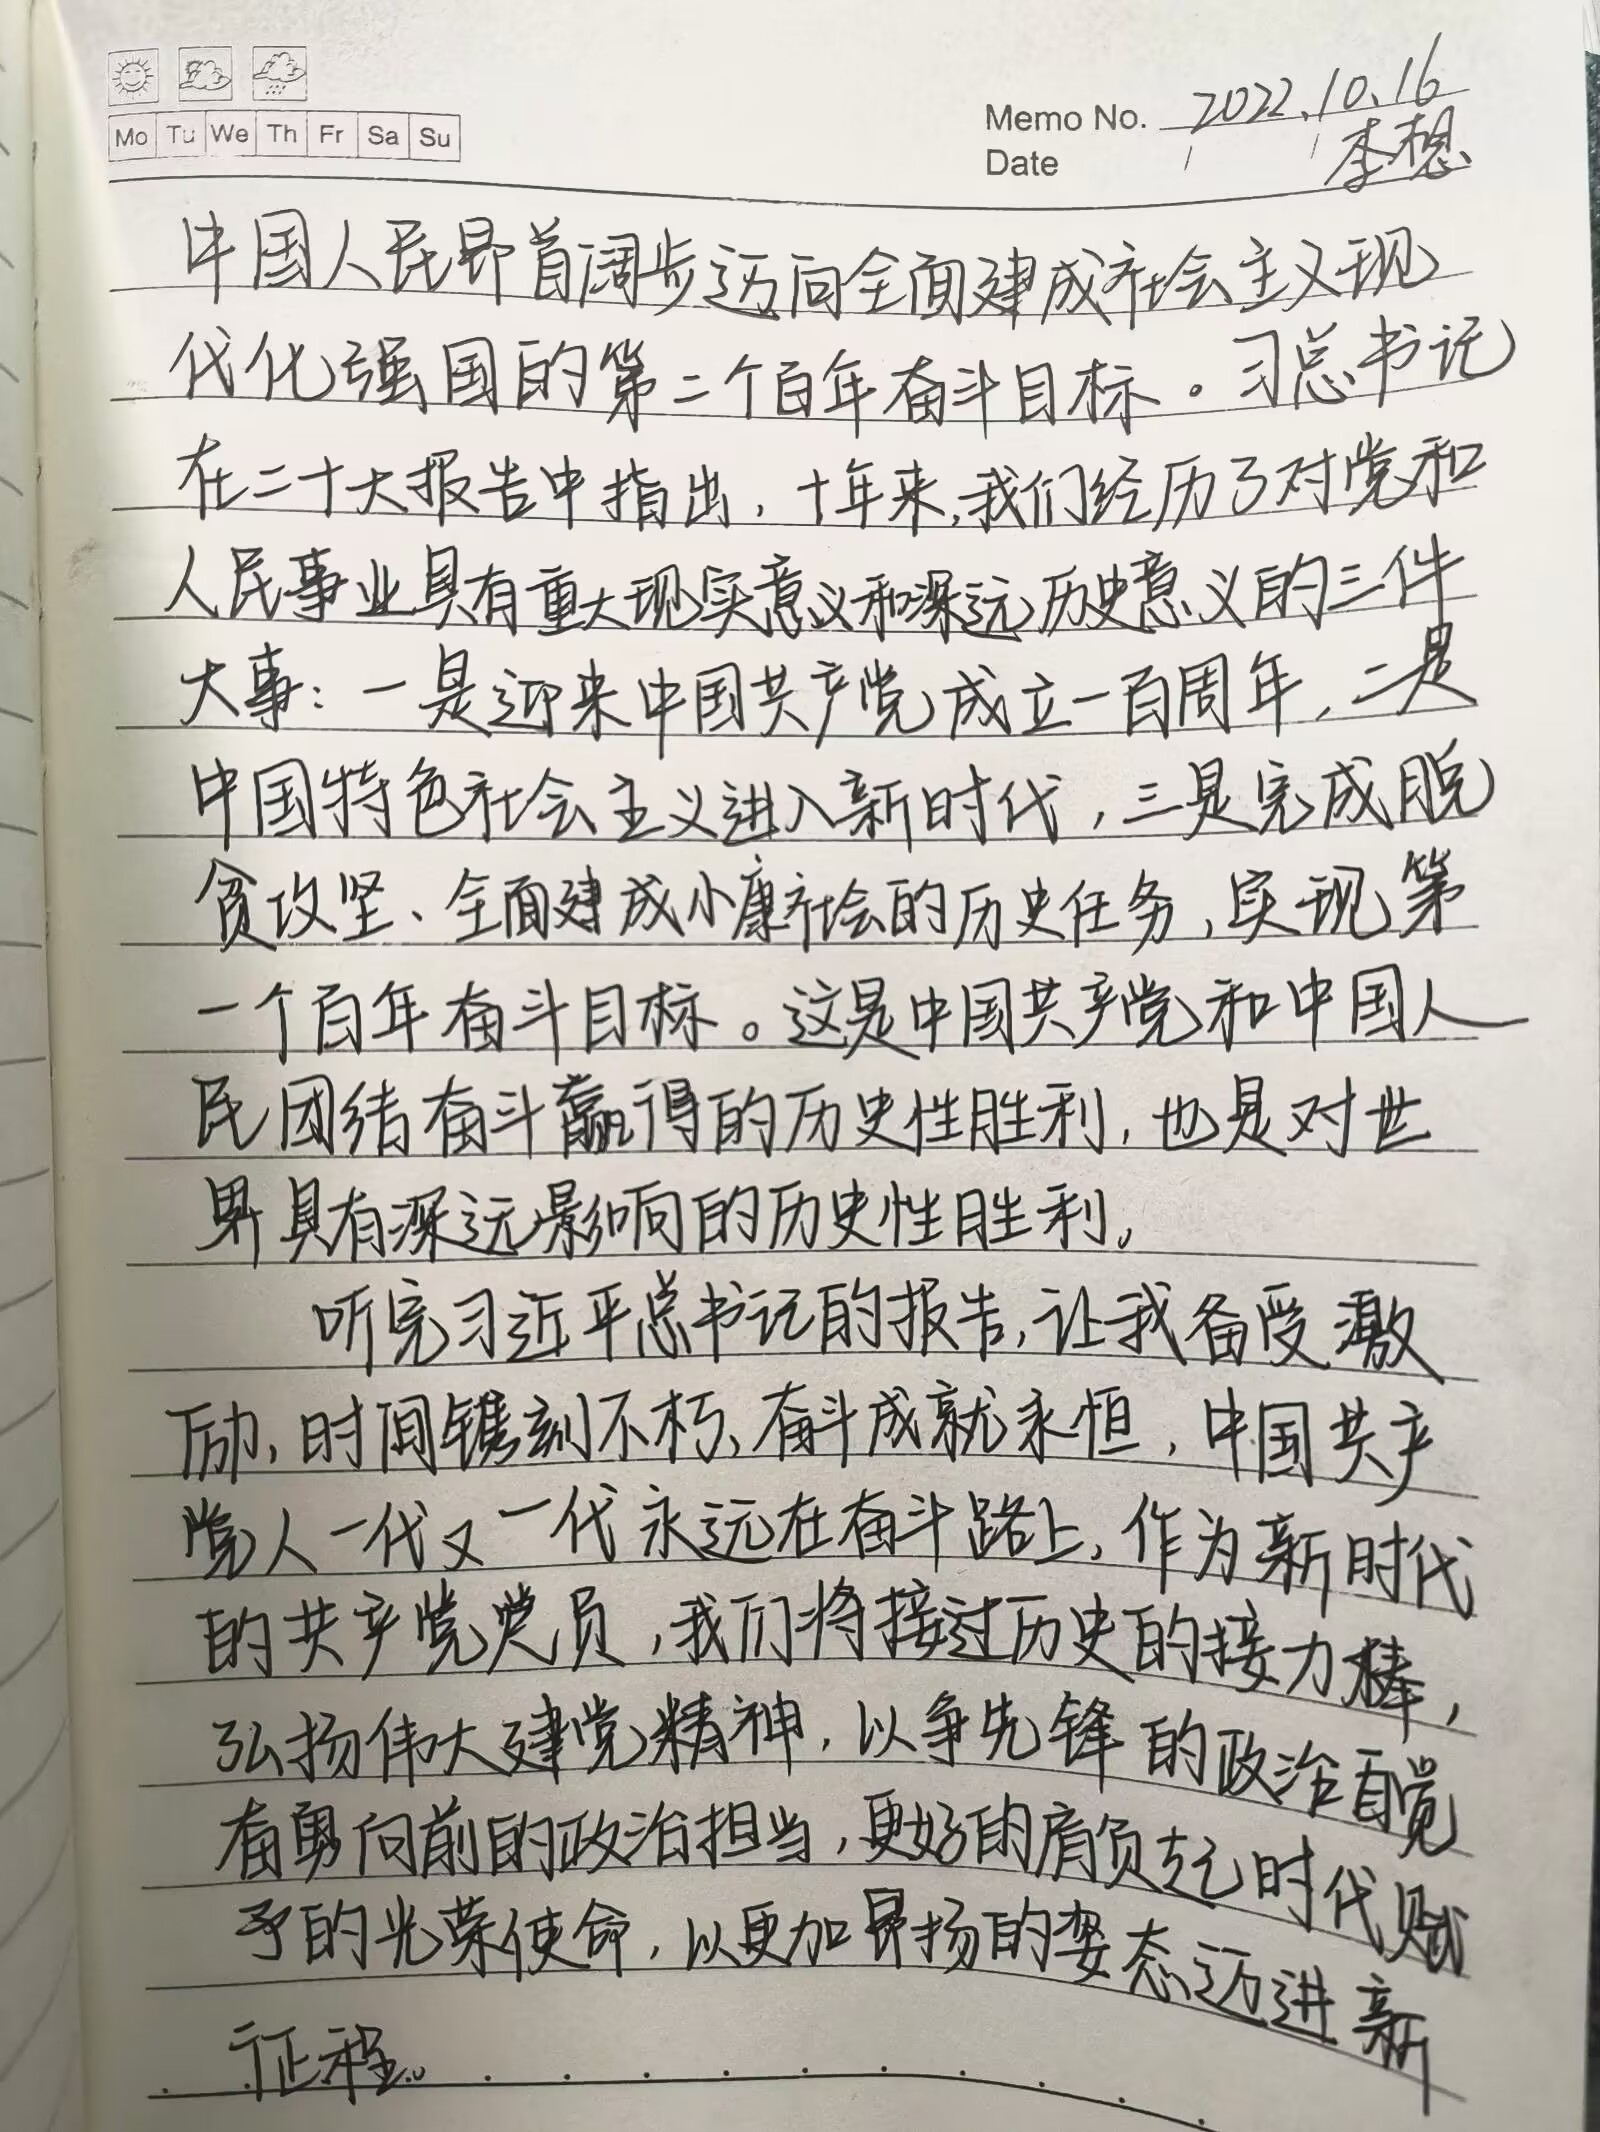 Mo Tu We Th Fr Sa Su
Memo No. 2022.10.16
Date 李想
中国人民昂首阔步迈向全面建成社会主义现
代化强国的第二个百年奋斗目标。习总书记
在二十大报告中指出，十年来，我们经历了对党和
人民事业具有重大现实意义和深远历史意义的三件
大事：一是迎来中国共产党成立一百周年，二是
中国特色社会主义进入新时代，三是完成脱
贫攻坚、全面建成小康社会的历史任务，实现第
一个百年奋斗目标。这是中国共产党和中国人
民团结奋斗赢得的历史性胜利，也是对世
界具有深远影响的历史性胜利。
听完习近平总书记的报告，让我备受激
励，时间镌刻不朽、奋斗成就永恒，中国共产
党人一代又一代永远在奋斗路上，作为新时代
的共产党党员，我们将接过历史的接力棒，
弘扬伟大建党精神，以争先锋的政治自觉
奋勇向前的政治担当，更好的肩负起时代赋
予的光荣使命，以更加昂扬的姿态迈进新
征程。